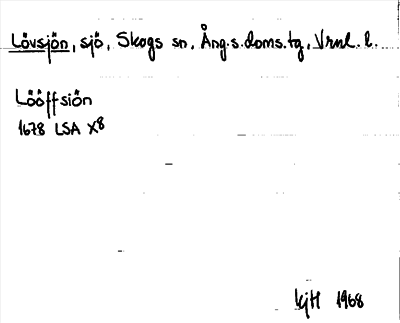 Lövsjön, sjö, Skogs sn, Ång.s.doms.tg, Vrnl. l.
Lööffsiön
1678 LSA X8
KjH 1968